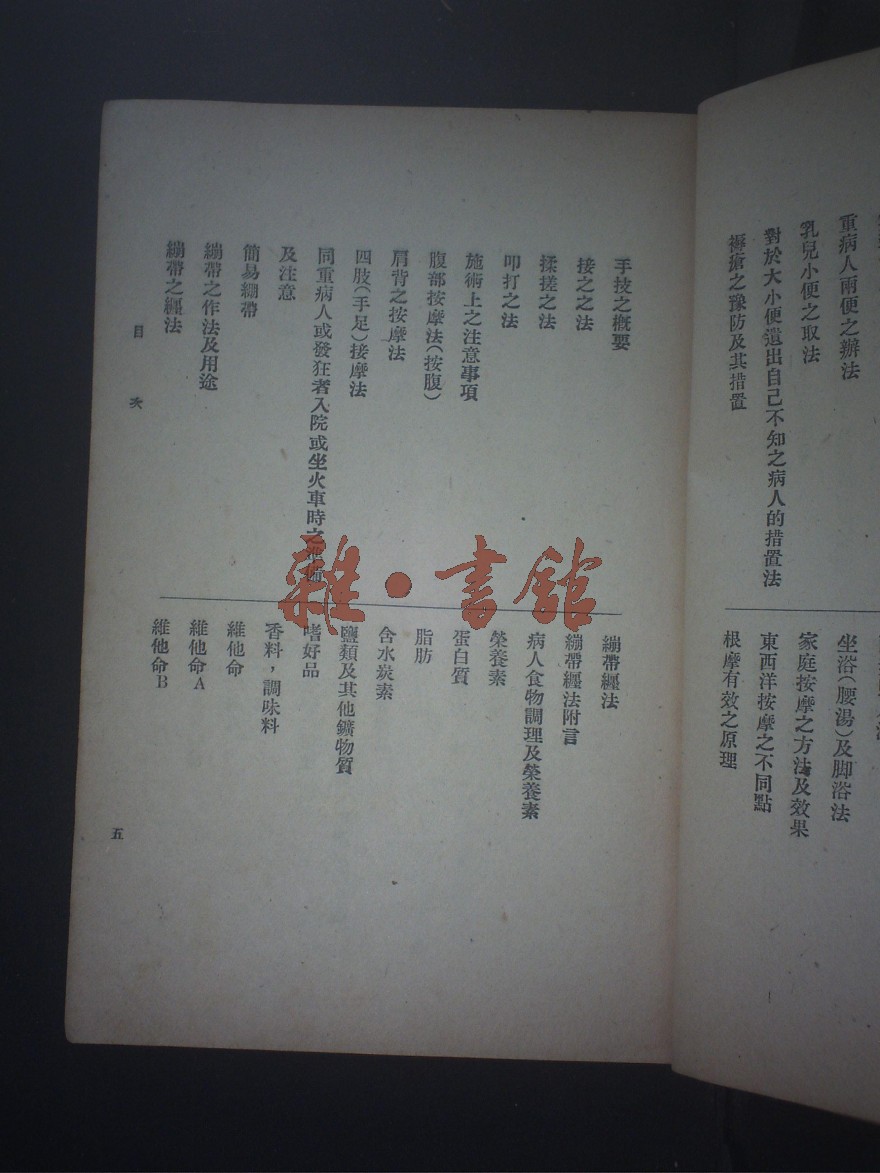 重病人兩便之辦法
乳兒小便之取法
對於大小便遺出自己不知之病人的措置法
褥瘡之豫防及其措置
坐浴(腰湯)及脚浴法
家庭按摩之方法及效果
東西洋按摩之不同點
根摩有效之原理
手技之概要
接之之法
揉搓之法
叩打之法
施術上之注意事項
腹部按摩法(按腹)
肩背之按摩法
四肢(手足)接摩法
同重病人或發狂者入院或坐火車時之準備
及注意
簡易繃帶
繃帶之作法及用途
繃帶之纏法
繃帶纏法
繃帶纏法附言
病人食物調理及榮養素
榮養素
蛋白質
脂肪
含水炭素
鹽類及其他鑛物質
嗜好品
香料,調味料
維他命
維他命A
維他命B
目次
五
雜·書館